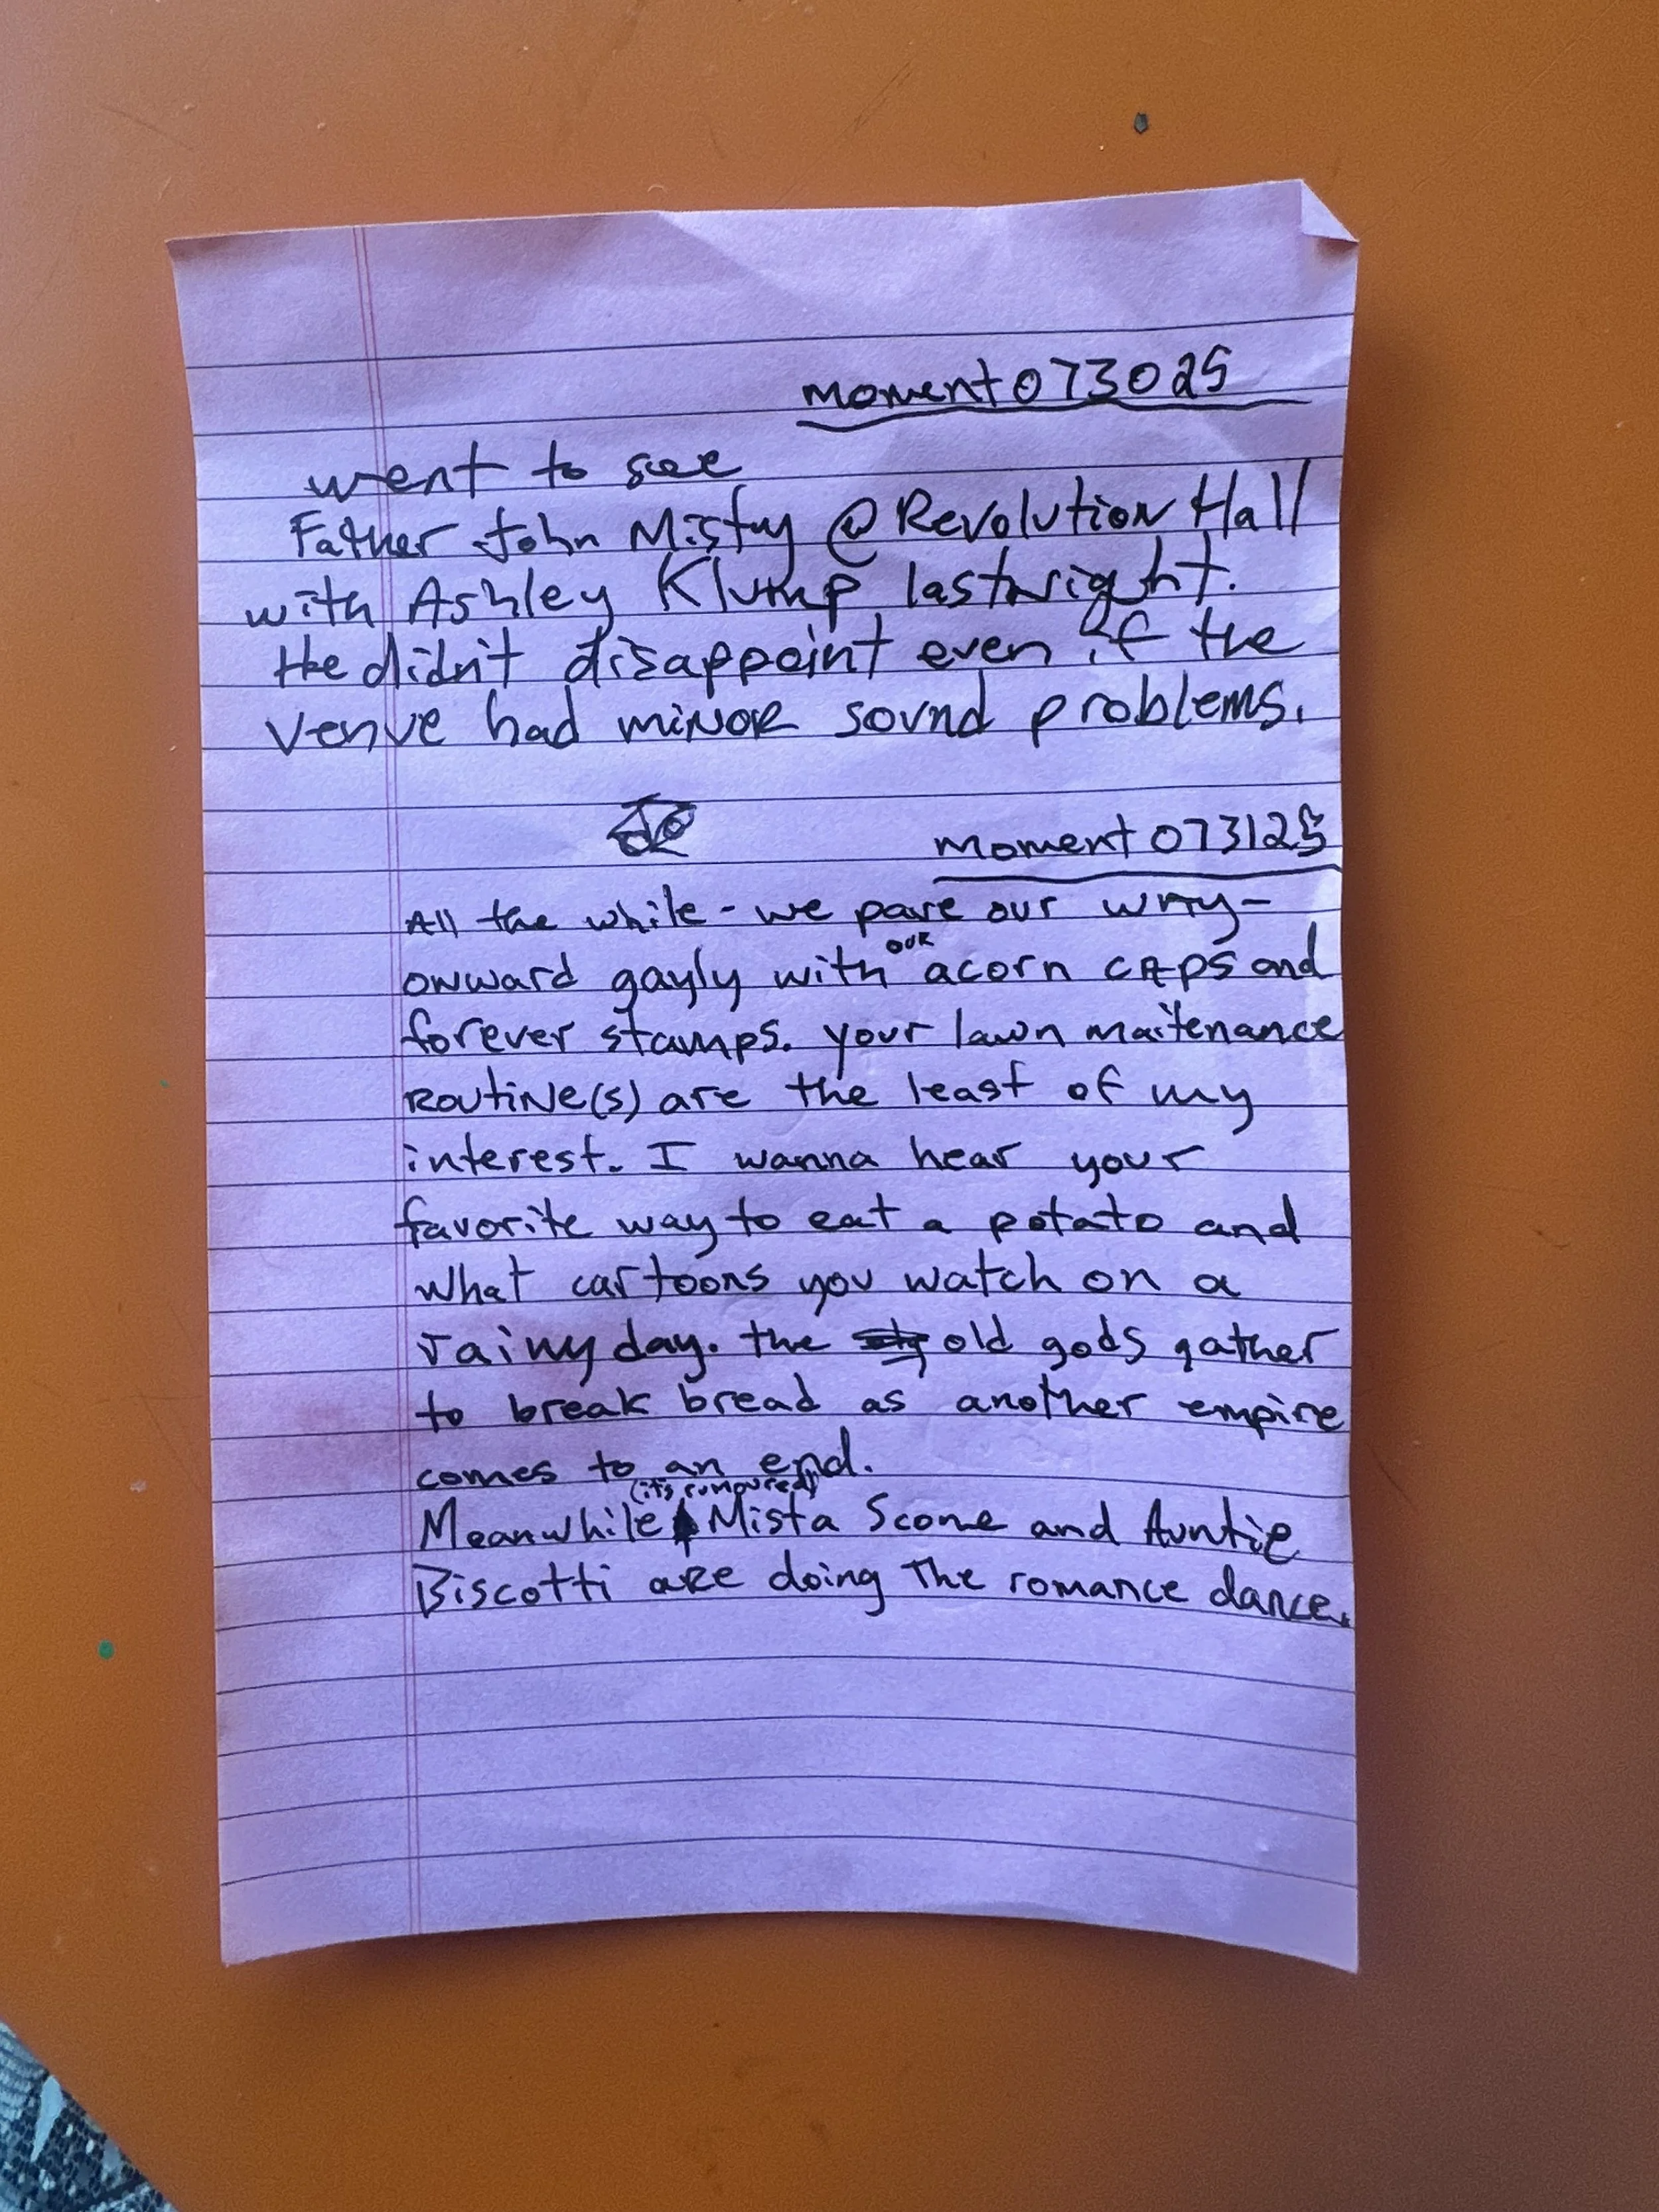 moment073025
went to see
Father John Misty @ Revolution Hall
with Ashley Klump lastnight.
He didn't disappoint even if the
venue had minor sound problems.
moment073125
All the while - we pave our way -
our
onward gayly with acorn caps and
forever stamps. your lawn maitenance
routine(s) are the least of my
interest. I wanna hear your
favorite way to eat a potato and
what cartoons you watch on a
rainy day. the old gods gather
to break bread as another empire
comes to an end.
(its rumoured)
Meanwhile Mista Scone and Auntie
Biscotti are doing The romance dance.